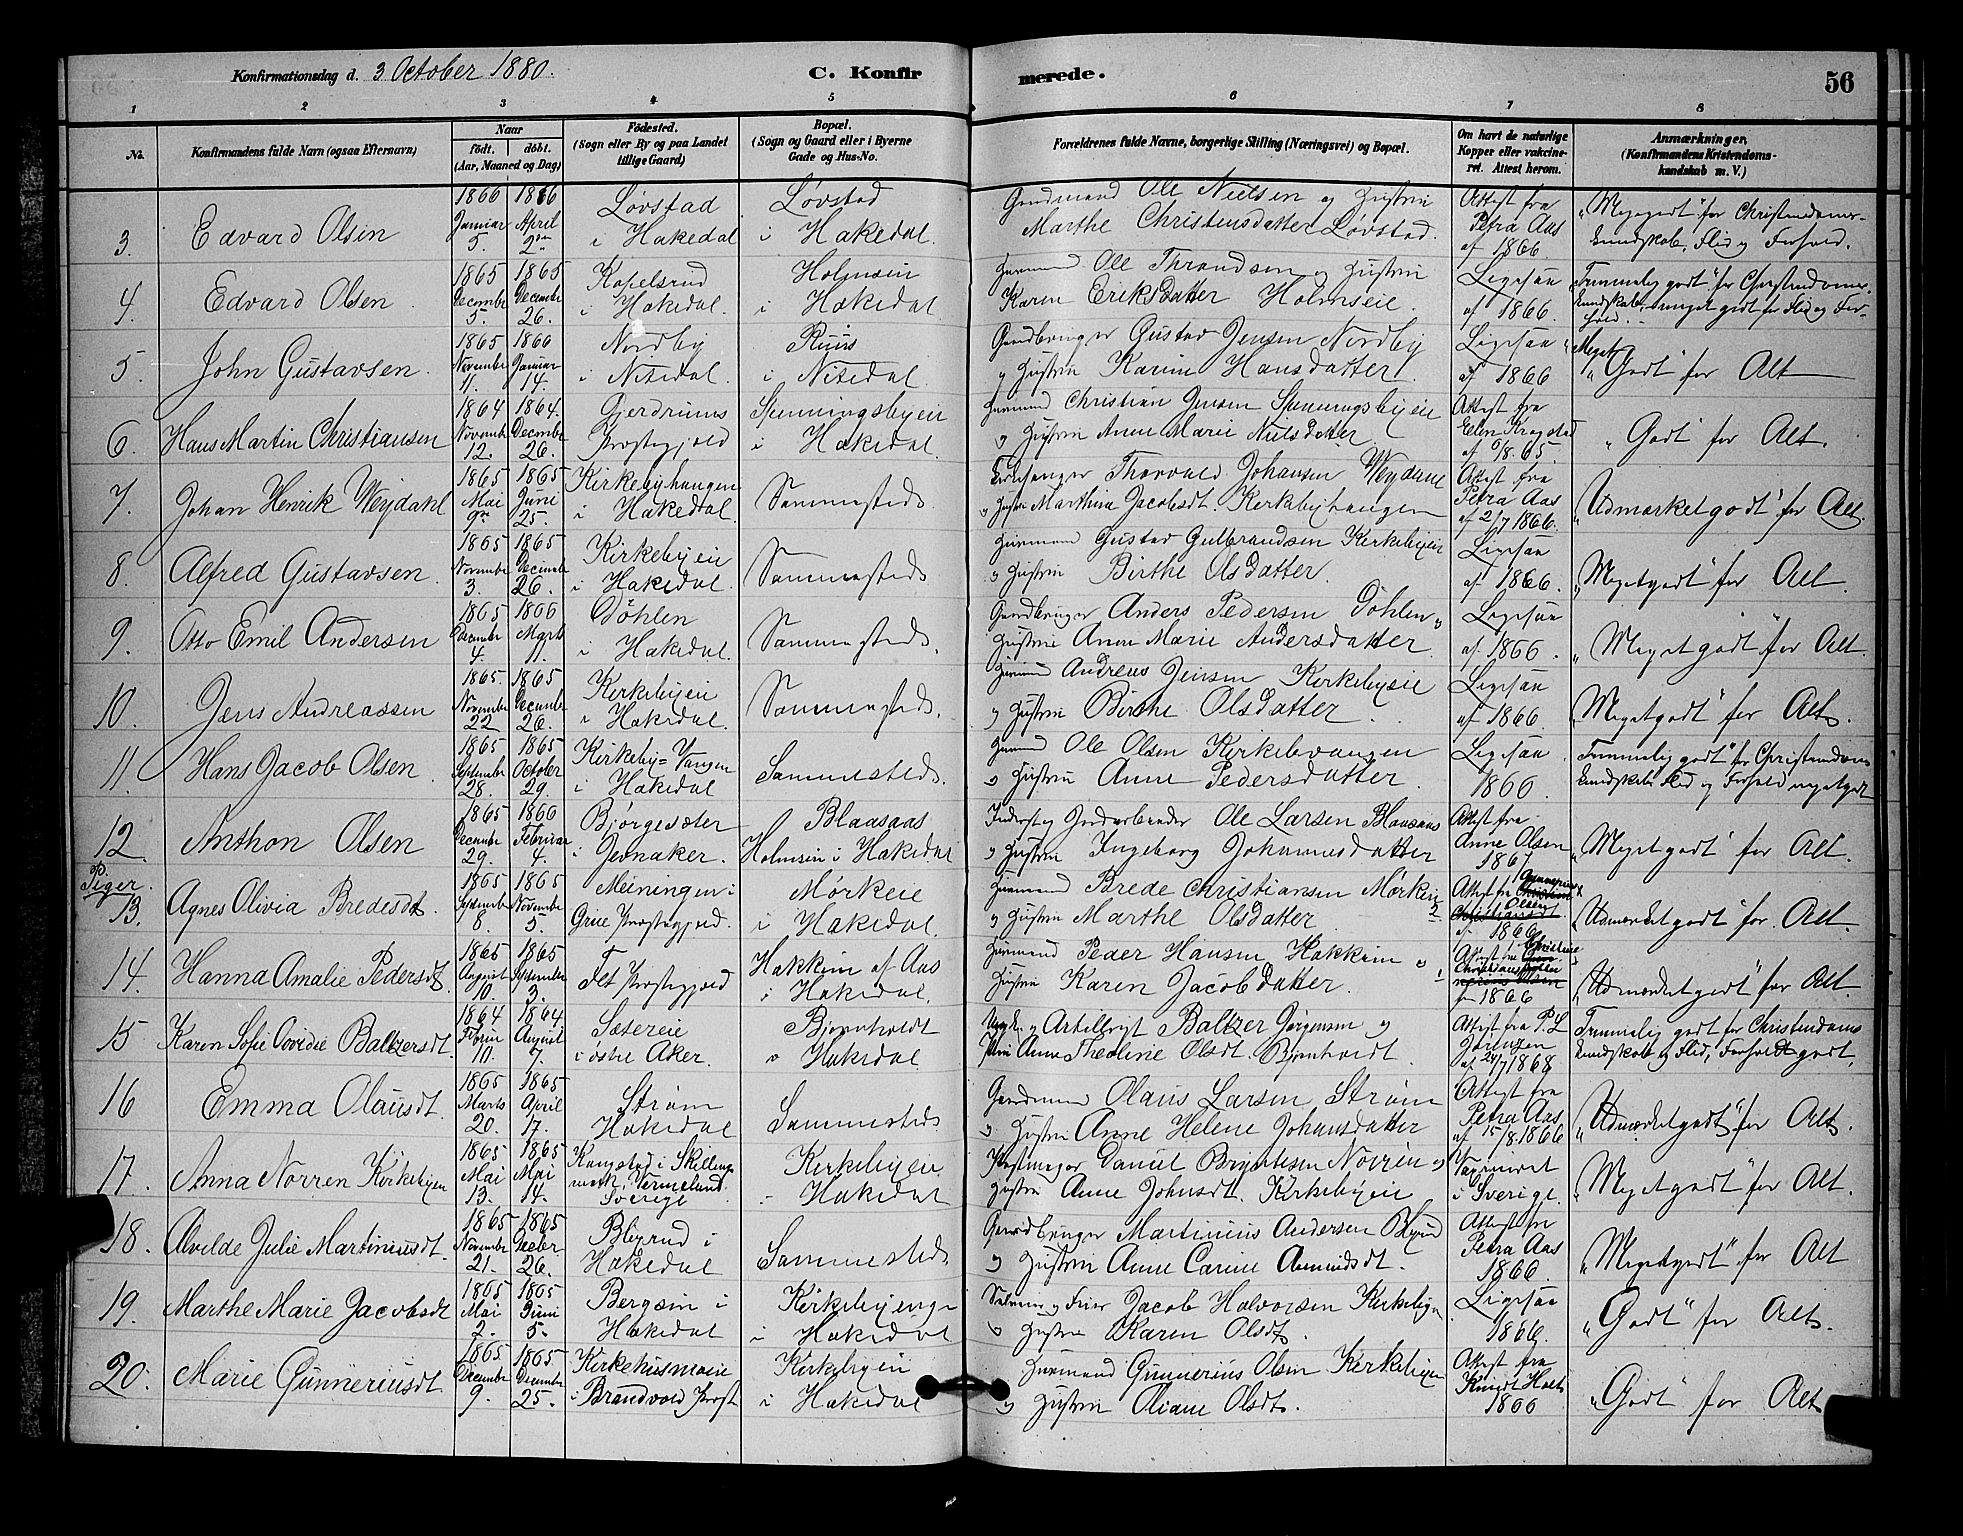 Konfirmationsdag d. 3 October 1880.
C. Konfirmerede.
56
1 2 3 4 5 6 7 8
No.
Konfirmandens fulde Navn (ogsaa Efternavn)
Naar
født. døbt.
(Aar, Maaned og Dag)
Fødested.
(Sogn eller By og paa Landet
tillige Gaard)
Bopæl.
(Sogn og Gaard eller i Byerne
Gade og Hus-No.
Forældrenes fulde Navne, borgerlige Stilling (Næringsvei) og Bopæl.
Om havt de naturlige
Kopper eller vakcine-
ret. Attest herom.
Anmærkninger.
(Konfirmandens Kristendoms-
kundskab m. V.)
3. Edvard Olsen
1866 Januar 5. 1866 April 2
Løvstad i Hakedal
Løvstad i Hakedal.
Gaardmand Ole Nielsen og Hustru
Marthe Christensdatter Løvstad.
Attest fra Petra Aas af 1866
"Megetgodt" for Christendoms-
kundskab, Flid og Forhold.
4. Edvard Olsen
1865 December 5. 1865 December 26.
i Hakedal.
Holmseie i Hakedal
Huusmand Ole Throndsen og Hustru
Karen Eriksdatter Holmseie.
Ligesaa af 1866.
Temmelig godt" for Christendoms-
kundskab, meget godt for Flid og For-
hold.
5. John Gustavsen.
1865 November 11. 1866 Januar 14.
Nordby i Nitedal.
Ruus i Nitedal.
Gaardbruger Gustav Jensen Nordby
og Hustru Karine Hansdatter.
Ligesaa af 1866
"Meget Godt" for Alt
6. Hans Martin Christiansen
1864 November 12. 1864. December 26.
Gjerdrums Præstegjeld
Spenningsbyeie i Hakedal.
Huusmand Christian Jensen Spenningsbyeie
og Hustru Anne Marie Nielsdatter.
Attest fra Ellen Krogstad af 6/8. 65.
"Godt" for Alt.
7. Johan Henrik Weydahl
1865 Mai 9 1865 Juni 25.
Kirkebyhaugen i Hakedal.
Sammesteds.
Thorvald Johansen Weydahl
og Hustru Marthina Jacobsdt. Kirkebyhaugen
Attest fra Petra Aas af 2/7 1866.
"Udmærketgodt" for Alt.
8. Alfred Gustavsen.
1865 November 3. 1865 December 26.
Kirkebyeie i Hakedal.
Sammesteds
Huusmand Gustav Gulbrandsen Kirkebyeie
og Hustru Birthe Olsdatter.
Ligesaa af 1866.
"Megetgodt" for Alt.
9. Otto Emil Andersen
1865 December 4. 1866 Marts 11.
Døhlen i Hakedal.
Sammesteds.
Gaardbruger Anders Pedersen Døhlen og
Hustru Anne Marie Andersdatter.
Ligesaa af 1866.
"Megetgodt" for Alt.
10. Jens Andreassen
1865. November 22 1865 December 26.
Kirkebyeie i Hakedal.
Sammesteds.
Huusmand Andreas Jensen Kirkebyeie
og Hustru Birthe Olsdatter.
Ligesaa af 1866.
"Megetgodt" for Alt.
11. Hans Jacob Olsen
1865 September 28. 1865 October 29.
Kirkeby=Vangen i Hakedal
Sammesteds.
Huusmand Ole Olsen Kirkebyvangen
og Hustru Anne Pedersdatter.
Ligesaa 1866.
Temmelig godt" for Christendoms
kundskab, Flid og Forhold megetgodt
12. Anthon Olsen
1865 December 29. 1866 Februar 4.
Bjørgesæter i Jevnaker.
Blaasaas Holmseie i Hakedal
Inderst og Jordarbeider Ole Larsen Blaasaas
og Hustru Ingeborg Johannesdatter
Attest fra Anne Olsen 1867
"Megetgodt" for Alt.
Piger.
13. Agnes Olivia Bredesdt.
1865 September 8. 1865 November 5.
Meiningen i Grue Præstegjeld.
Mørkeie i Hakedal.
Huusmand Brede Christiansen Mørkeie
og Hustru Marthe Olsdatter.
Attest fra Gunnerius Olsen af 1866
"Udmærketgodt" for Alt.
14. Hanna Amalie Pedersdt.
1865 August 10. 1865 September 3.
Fet Præstegjeld
Hakkim af Aas i Hakedal.
Huusmand Peder Hansen Hakkim og
Hustru Karen Jacobsdatter.
Attest fra Christiansdatter for 1866
"Udmærketgodt" for Alt.
15 Karen Sofie Ovidie Baltzersdt.
1864 Februar 10. 1864 August 7.
Sætereie i østre Aker.
Bjørnholdt Hakedal
og Artellerist Baltzer Jørgensen og
Hustru Anne Theoline Olsdt. Bjørnholdt.
Attest fra P. L. Jørgensen af 24/7 1868
Temmelig godt for Christendoms
kundskab og Flid, Forholdt godt.
16 Emma Olausdt.
1865 Marts 20. 1865 April 17.
Strøm Hakedal
Sammesteds
Gaardmand Olaus Larsen Strøm
og Hustru Anne Helene Johansdatter
Attest fra Petra Aas af 15/8. 1866
"Udmærketgodt" for Alt.
17. Anna Norren Kirkebyeie
1865 Mai 13. 1865 Mai 14.
i Skillingmark, Vermeland Sverige
Kirkebyeie Hakedal
Daniel Norrén og
Hustru Anne Johnsdt. Kirkebyeie
Vaxineret i Sverige.
"Megetgodt" for Alt.
18. Alvilde Julie Martiniusdt.
1865 November 21. 1865 Decbr. 26.
Blyrud i Hakedal
Sammesteds
Gaardbruger Martinius Andersen Blyrud
og Hustru Anne Carine Amundsdt.
Attest fra Petra Aas 1866.
"Megetgodt" for Alt
19. Marthe Marie Jacobsdt
1865 Mai 2. 1865 Juni 5.
i Hakedal
i Hakedal
Jacob Halvorsen
og Hustru Karen Olsdt.
Ligesaa 1866.
"Godt" for Alt.
20. Marie Gunneriusdt.
1865. December 9. 1865 December 25.
i Brandvold Præst
Kirkebyeie i Hakedal
Huusmand Gunnerius Olsen Kirkebyeie
og Hustru Oliane Olsdt.
Attest fra Knudt Holt 1866
"Godt" for Alt